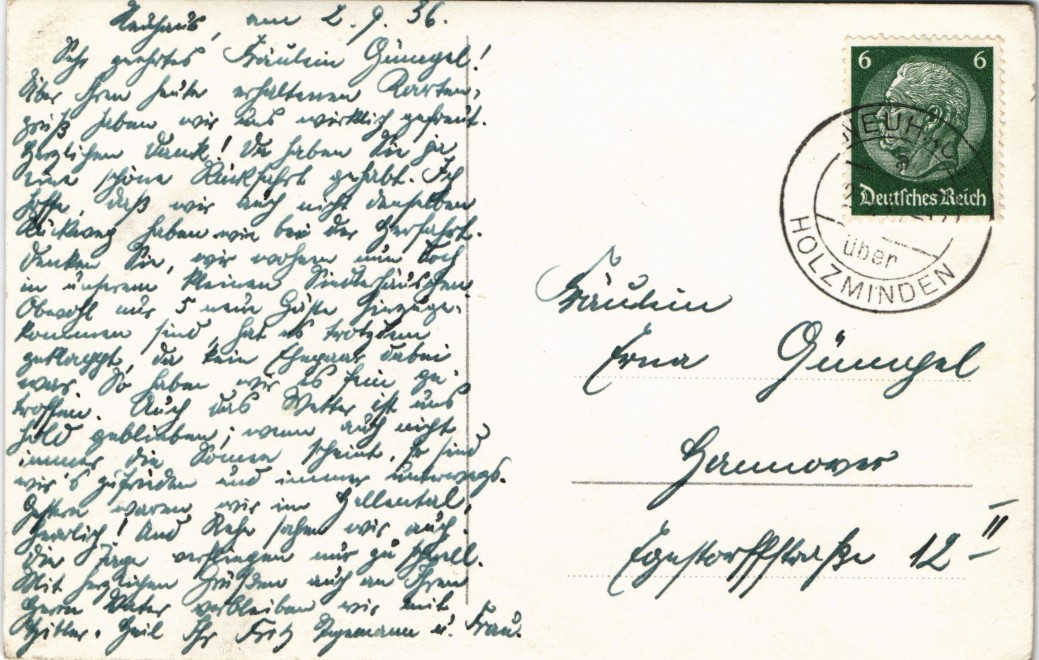 Neuhaus, am 2.9.36.
Sehr geehrtes Fräulein Gümpel!
Über Ihren heute erhaltenen Karten-
gruß haben wir uns wirklich gefreut.
Herzlichen Dank! Da haben Sie ja
eine schöne Rückfahrt gehabt. Ich
hoffe, daß wir auch nicht denselben
Rückweg haben wie bei der Herfahrt.
Denken Sie, wir wohnen nun doch
in unserem kleinen Siedlerhäuschen
Obwohl nur 5 neue Gäste hinzuge-
kommen sind, hat es trotzdem
geklappt, da kein Ehepaar dabei
war. So haben wir es fein ge-
troffen. Auch das Wetter ist uns
hold geblieben; wenn auch nicht
immer die Sonne scheint. So sind
wir's zufrieden und immer unterwegs.
Gestern waren wir im Hellental,
herrlich! Und Rehe sahen wir auch.
Die Tage verfliegen nur zu schnell.
Mit herzlichen Grüßen auch an Ihren
Herrn Vater verbleiben wir mit
Hitler-Heil Ihr Fritz u. Frau.
6 6
Deutsches Reich
NEUHAUS
über
HOLZMINDEN
Fräulein
Erna Gümpel
Hannover
Egestorffstraße 12 II